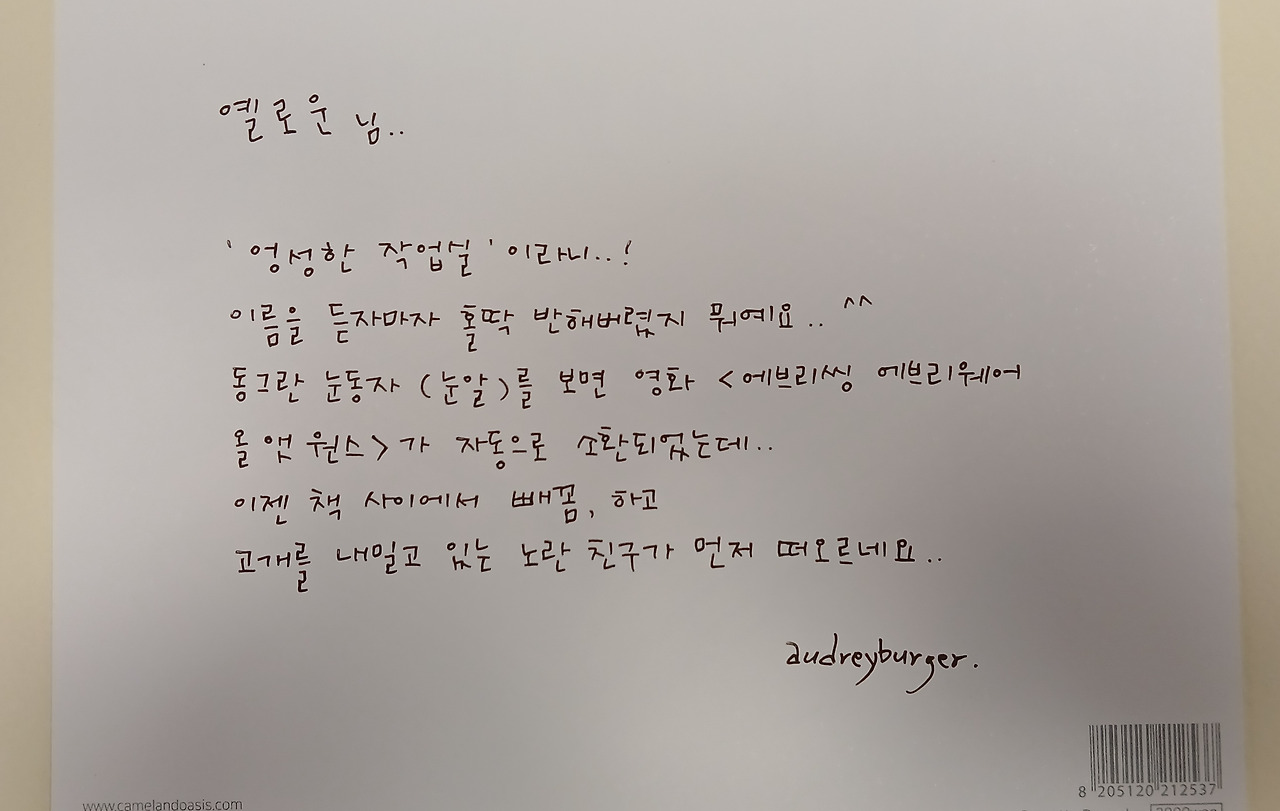 옐로운 님..
'엉성한 작업실'이라니..!
이름을 듣자마자 홀딱 반해버렸지 뭐예요.. ^^
동그란 눈동자 (눈알)를 보면 영화 <에브리씽 에브리웨어
올 앳 원스>가 자동으로 소환되었는데..
이젠 책 사이에서 빼꼼, 하고
고개를 내밀고 있는 노란 친구가 먼저 떠오르네요..
audreyburger.
8 205120 212537
www.camelandoasis.com